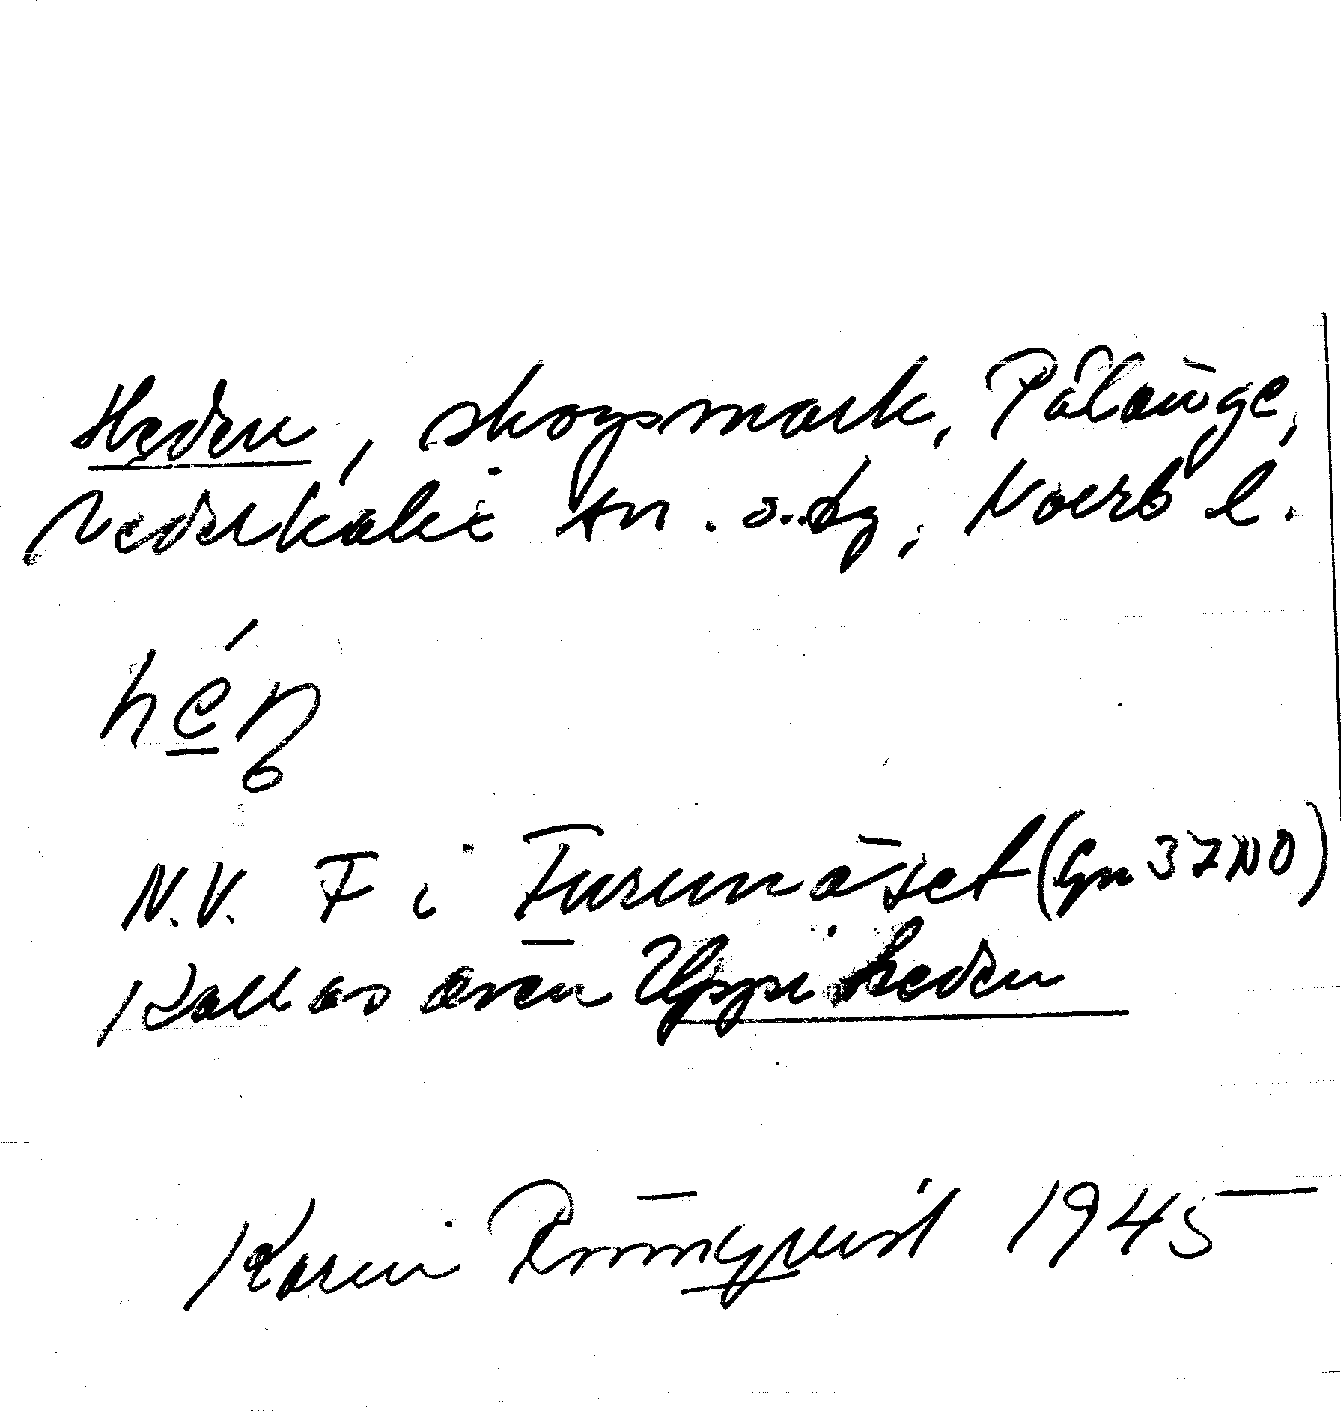 Heden, skogsmark, Pålänge,
Nederkalix sn. o. tg, Norrb l.
hé̱n̥
N.V. F i Furunäset (Gn 37NO)
Kallas även Uppi heden
Karin Rönnqvist 1945